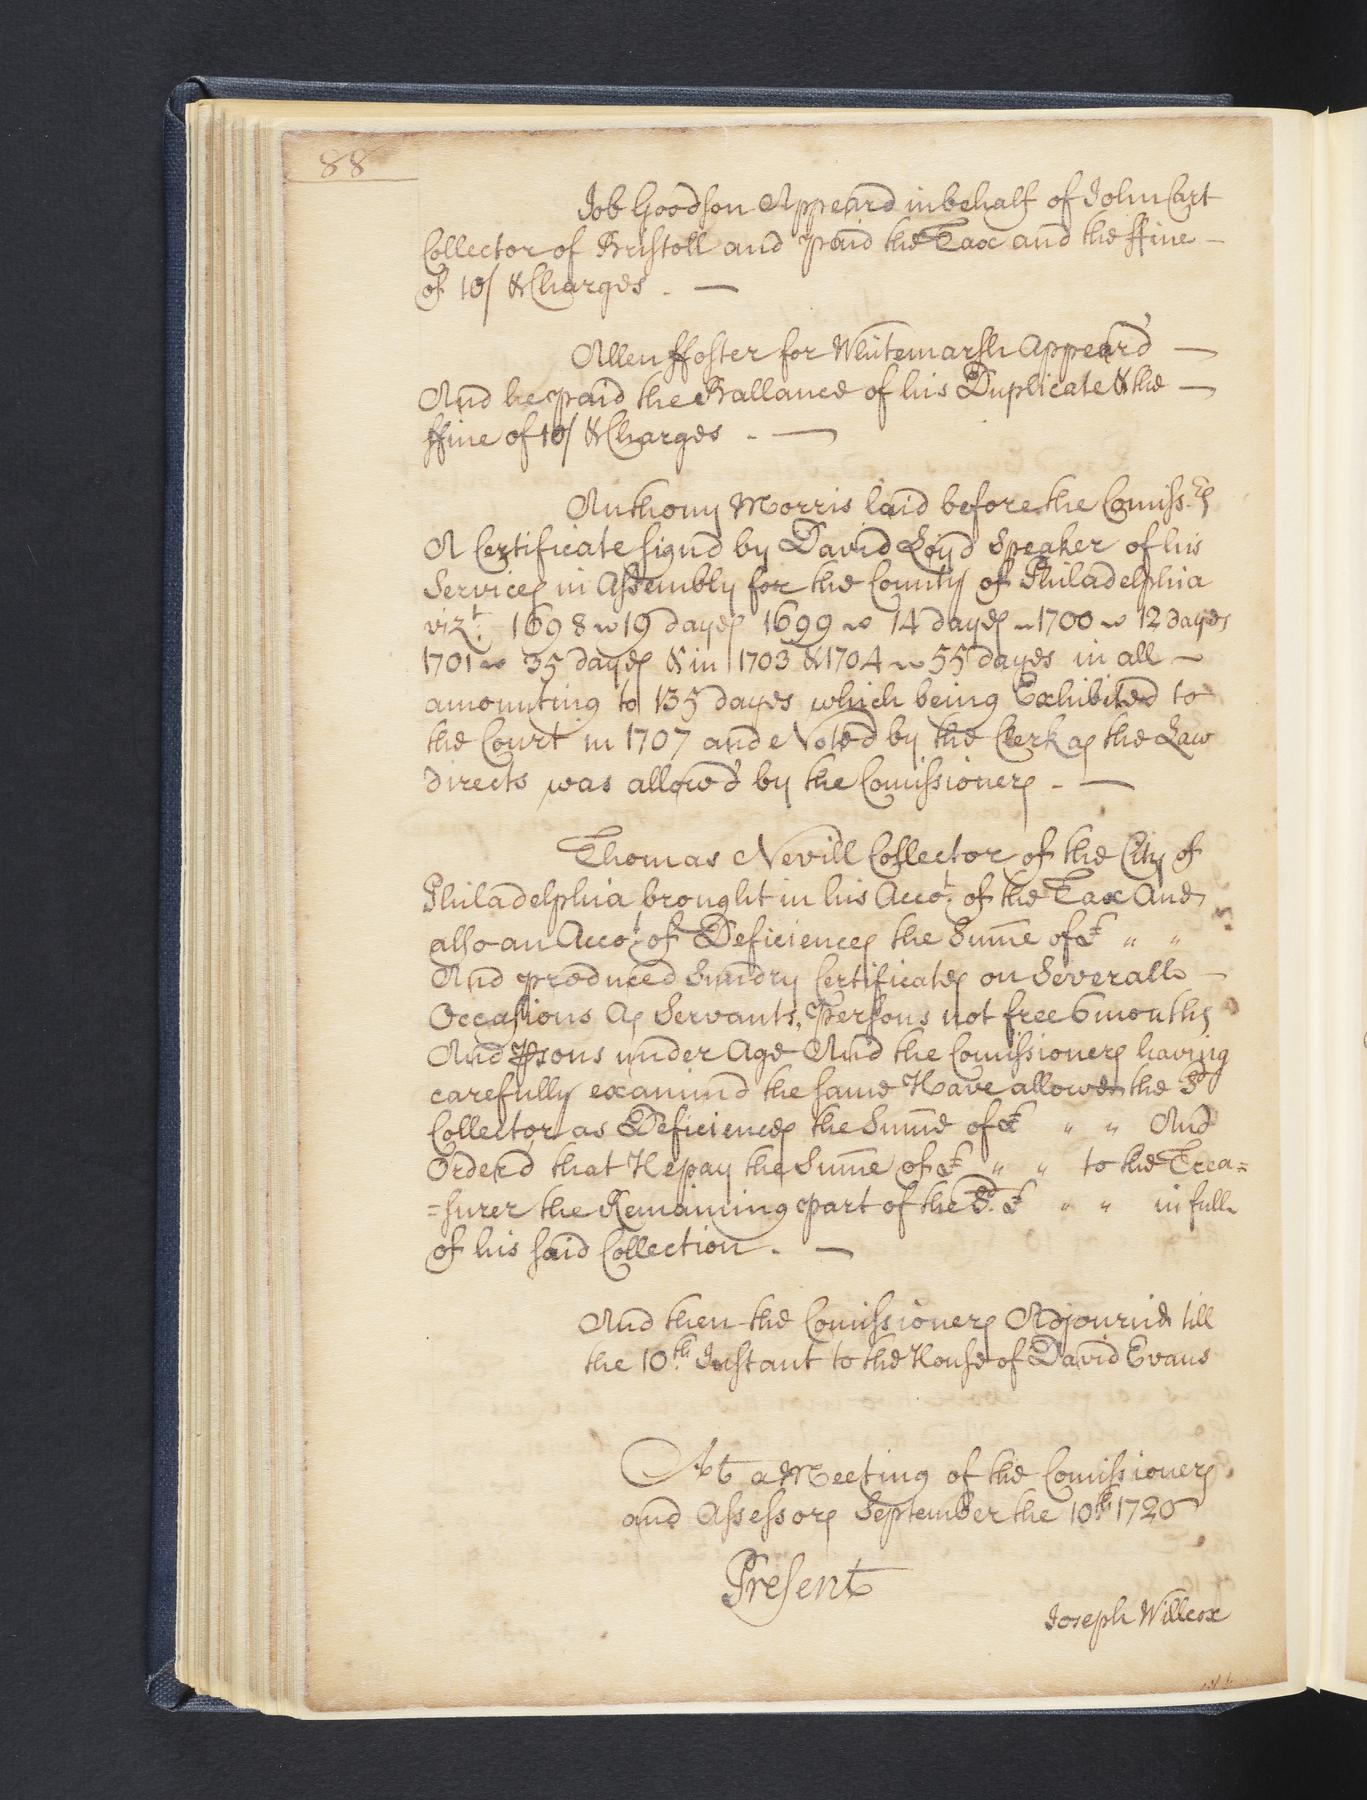 88
Job Goodson Appeard in behalf of John Cart
Collector of Bristoll and paid the Tax and the ffine —
of 10/ & Charges . —
Allen ffoster for Whitemarsh Appear'd —
And he paid the Ballance of his Duplicate & the —
ffine of 10/ & Charges . —
Anthony Morris laid before the Comiss.rs
A Certificate signd by David Loyd Speaker of his
Services in Assembly for the County of Philadelphia
vizt. 1698 ~ 19 dayes 1699 ~ 14 dayes ~ 1700 ~ 12 dayes
1701 ~ 35 dayes & in 1703 & 1704 ~ 55 dayes in all ~
amounting to 135 dayes which being Exhibited to
the Court in 1707 and Noted by the Clerk as the Law
directs was allow'd by the Comissioners . —
Thomas Nevill Collector of the City of
Philadelphia brought in his Acco.t of the Tax And
also an Acco.t of Deficiences the Sum̄e of £ " "
And produced Sundry Certificates on Severall —
Occasions As Servants, Persons not free 6 months
And ꝑsons under Age And the Comissioners having
carefully examind the same Have allowed the Sd
Collector as Deficiences the Sum̄e of £ " " And
Orderd that He pay the Sum̄e of £ " " to the Trea=
=surer the Remaining part of the Sd. £ " " in full
of his said Collection . —
And then the Comissioners Adjournid till
the 10.th Instant to the House of David Evans
At a Meeting of the Comissioners
and Assessors September the 10th 1720
Present
Joseph Willcox